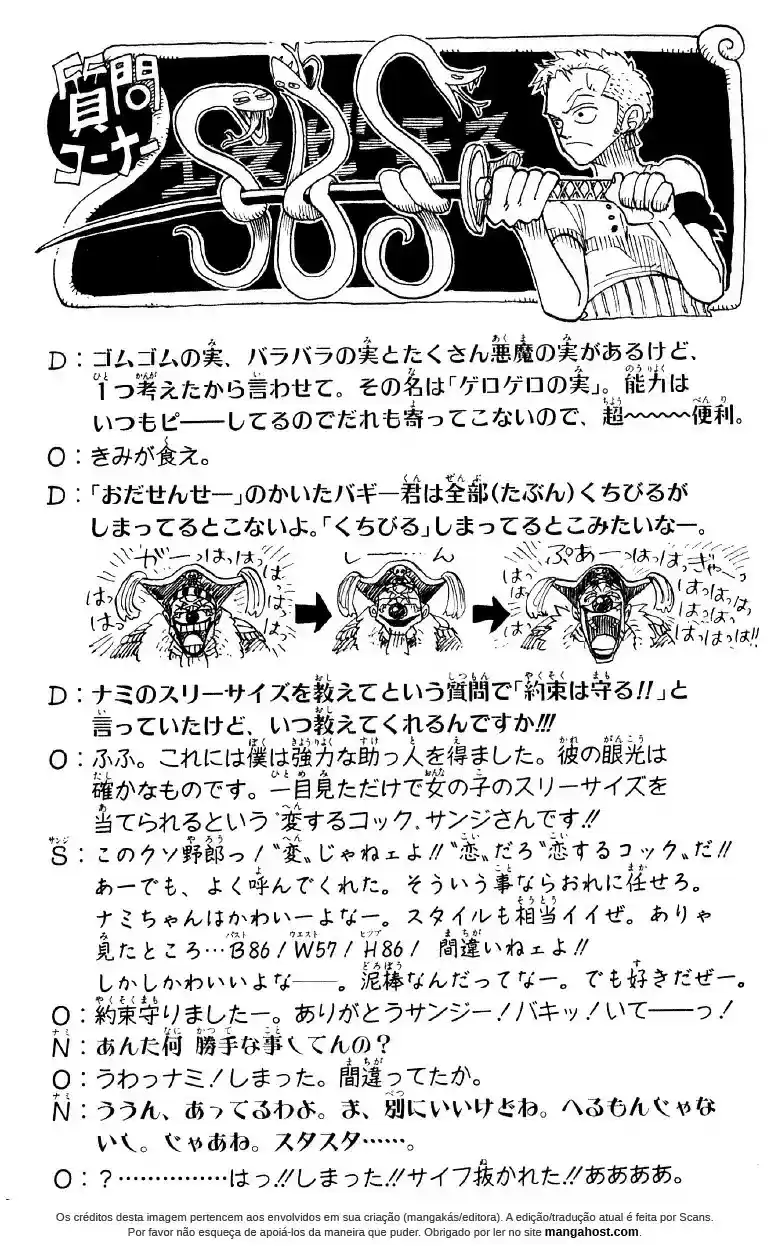 質問コーナー
SBS
エスビーエス
D：ゴムゴムの実、バラバラの実とたくさん悪魔の実があるけど、
1つ考えたから言わせて。その名は「ゲロゲロの実」。能力は
いつもピ――してるのでだれも寄ってこないので、超〜〜〜〜便利。
O：きみが食え。
D：「おだせんせー」のかいたバギー君は全部(たぶん)くちびるが
しまってるとこないよ。「くちびる」しまってるとこみたいなー。
がーっはっはっは
はっはっ
はっはっ
しー……ん
ぷあーっはっはっぎゃーっ
はっはっ
はっはっはっ
はっはっは
はっはっは!!
D：ナミのスリーサイズを教えてという質問で「約束は守る!!」と
言っていたけど、いつ教えてくれるんですか!!!
O：ふふ。これには僕は強力な助っ人を得ました。彼の眼光は
確かなものです。一目見ただけで女の子のスリーサイズを
当てられるという〝変するコック〟サンジさんです!!
S：このクソ野郎っ！〝変〟じゃねェよ!!〝恋〟だろ〝恋するコック〟だ!!
あーでも、よく呼んでくれた。そういう事ならおれに任せろ。
ナミちゃんはかわいーよなー。スタイルも相当イイぜ。ありゃ
見たところ…B86！W57！H86！ 間違いねェよ!!
しかしかわいいよな――。泥棒なんだってなー。でも好きだぜー。
O：約束守りましたー。ありがとうサンジー！バキッ！いて――っ！
N：あんた何 勝手な事してんの？
O：うわっナミ！しまった。間違ってたか。
N：ううん、あってるわよ。ま、別にいいけどね。へるもんじゃな
いし。じゃあね。スタスタ……。
O：？……………はっ!!しまった!!サイフ抜かれた!!ああああ。
Os créditos desta imagem pertencem aos envolvidos em sua criação (mangakás/editora). A edição/tradução atual é feita por Scans.
Por favor não esqueça de apoiá-los da maneira que puder. Obrigado por ler no site mangahost.com.